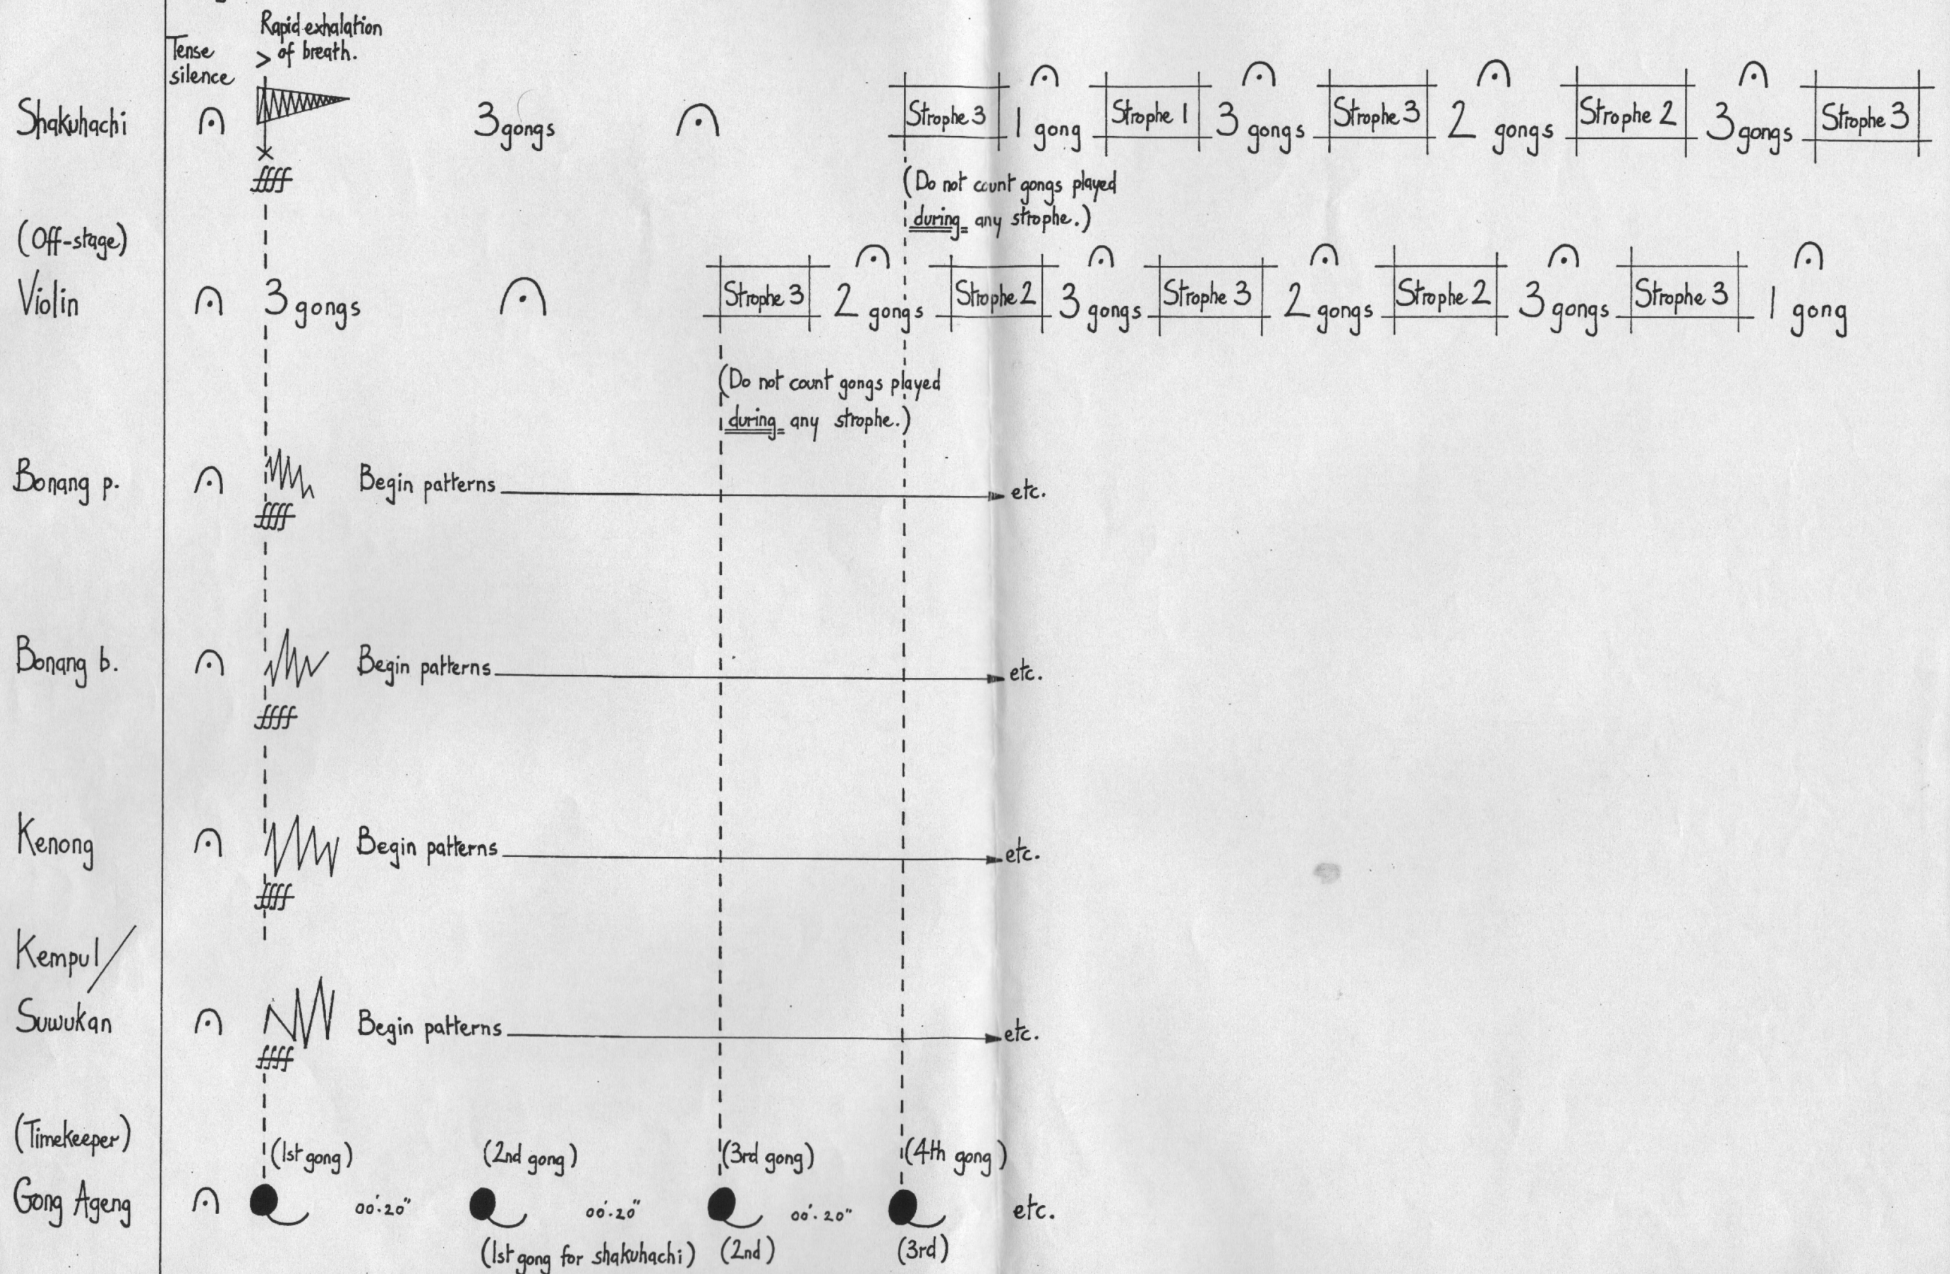 Rapid exhalation
Tense > of breath.
silence
Shakuhachi 3 gongs Strophe 3 1 gong Strophe 1 3 gongs Strophe 3 2 gongs Strophe 2 3 gongs Strophe 3
ffff
(Do not count gongs played
during any strophe.)
(Off-stage)
Violin 3 gongs Strophe 3 2 gongs Strophe 2 3 gongs Strophe 3 2 gongs Strophe 2 3 gongs Strophe 3 1 gong
(Do not count gongs played
during any strophe.)
Bonang p. Begin patterns etc.
ffff
Bonang b. Begin patterns etc.
ffff
Kenong Begin patterns etc.
ffff
Kempul/
Suwukan Begin patterns etc.
ffff
(Timekeeper)
(1st gong) (2nd gong) (3rd gong) (4th gong)
Gong Ageng 00'.20" 00'.20" 00'.20" etc.
(1st gong for shakuhachi) (2nd) (3rd)